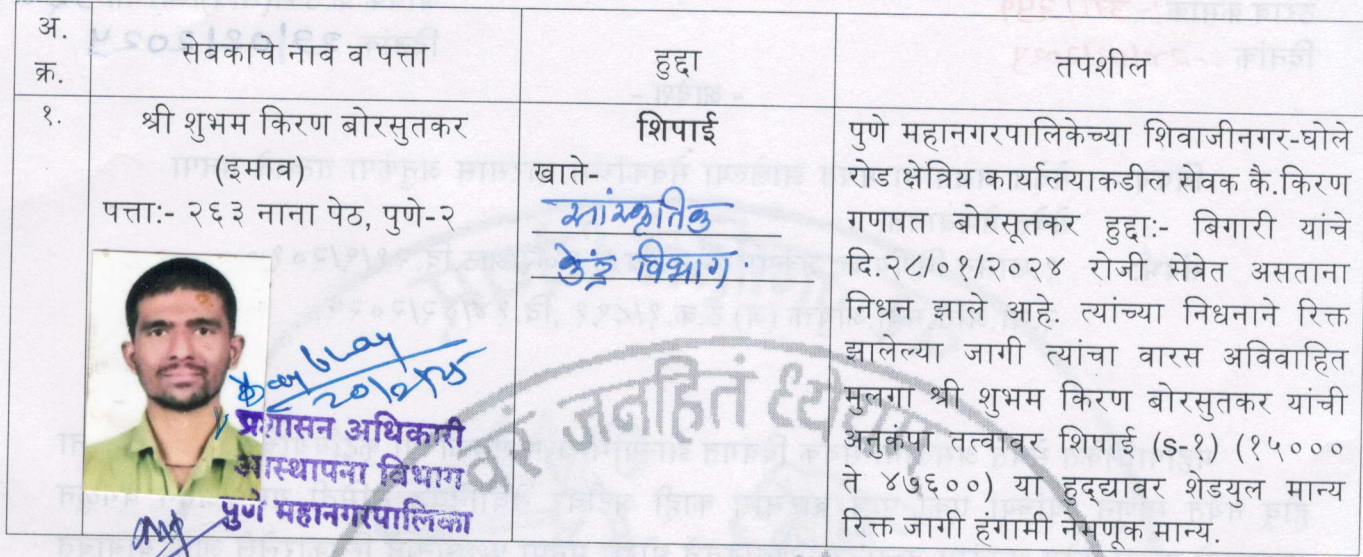 अ.
क्र.
सेवकाचे नाव व पत्ता
हुद्दा
तपशील
१.
श्री शुभम किरण बोरसुतकर
(इमाव)
पत्ता:- २६३ नाना पेठ, पुणे-२
शिपाई
खाते-
सांस्कृतिक
केंद्र विभाग.
पुणे महानगरपालिकेच्या शिवाजीनगर-घोले
रोड क्षेत्रिय कार्यालयाकडील सेवक कै.किरण
गणपत बोरसूतकर हुद्दा:- बिगारी यांचे
दि.२८/०१/२०२४ रोजी सेवेत असताना
निधन झाले आहे. त्यांच्या निधनाने रिक्त
झालेल्या जागी त्यांचा वारस अविवाहित
मुलगा श्री शुभम किरण बोरसुतकर यांची
अनुकंपा तत्वावर शिपाई (S-१) (१५०००
ते ४७६००) या हुद्द्यावर शेडयुल मान्य
रिक्त जागी हंगामी नेमणूक मान्य.
प्रशासन अधिकारी
आस्थापना विभाग
पुणे महानगरपालिका
वरं जनहितं ध्येयम्